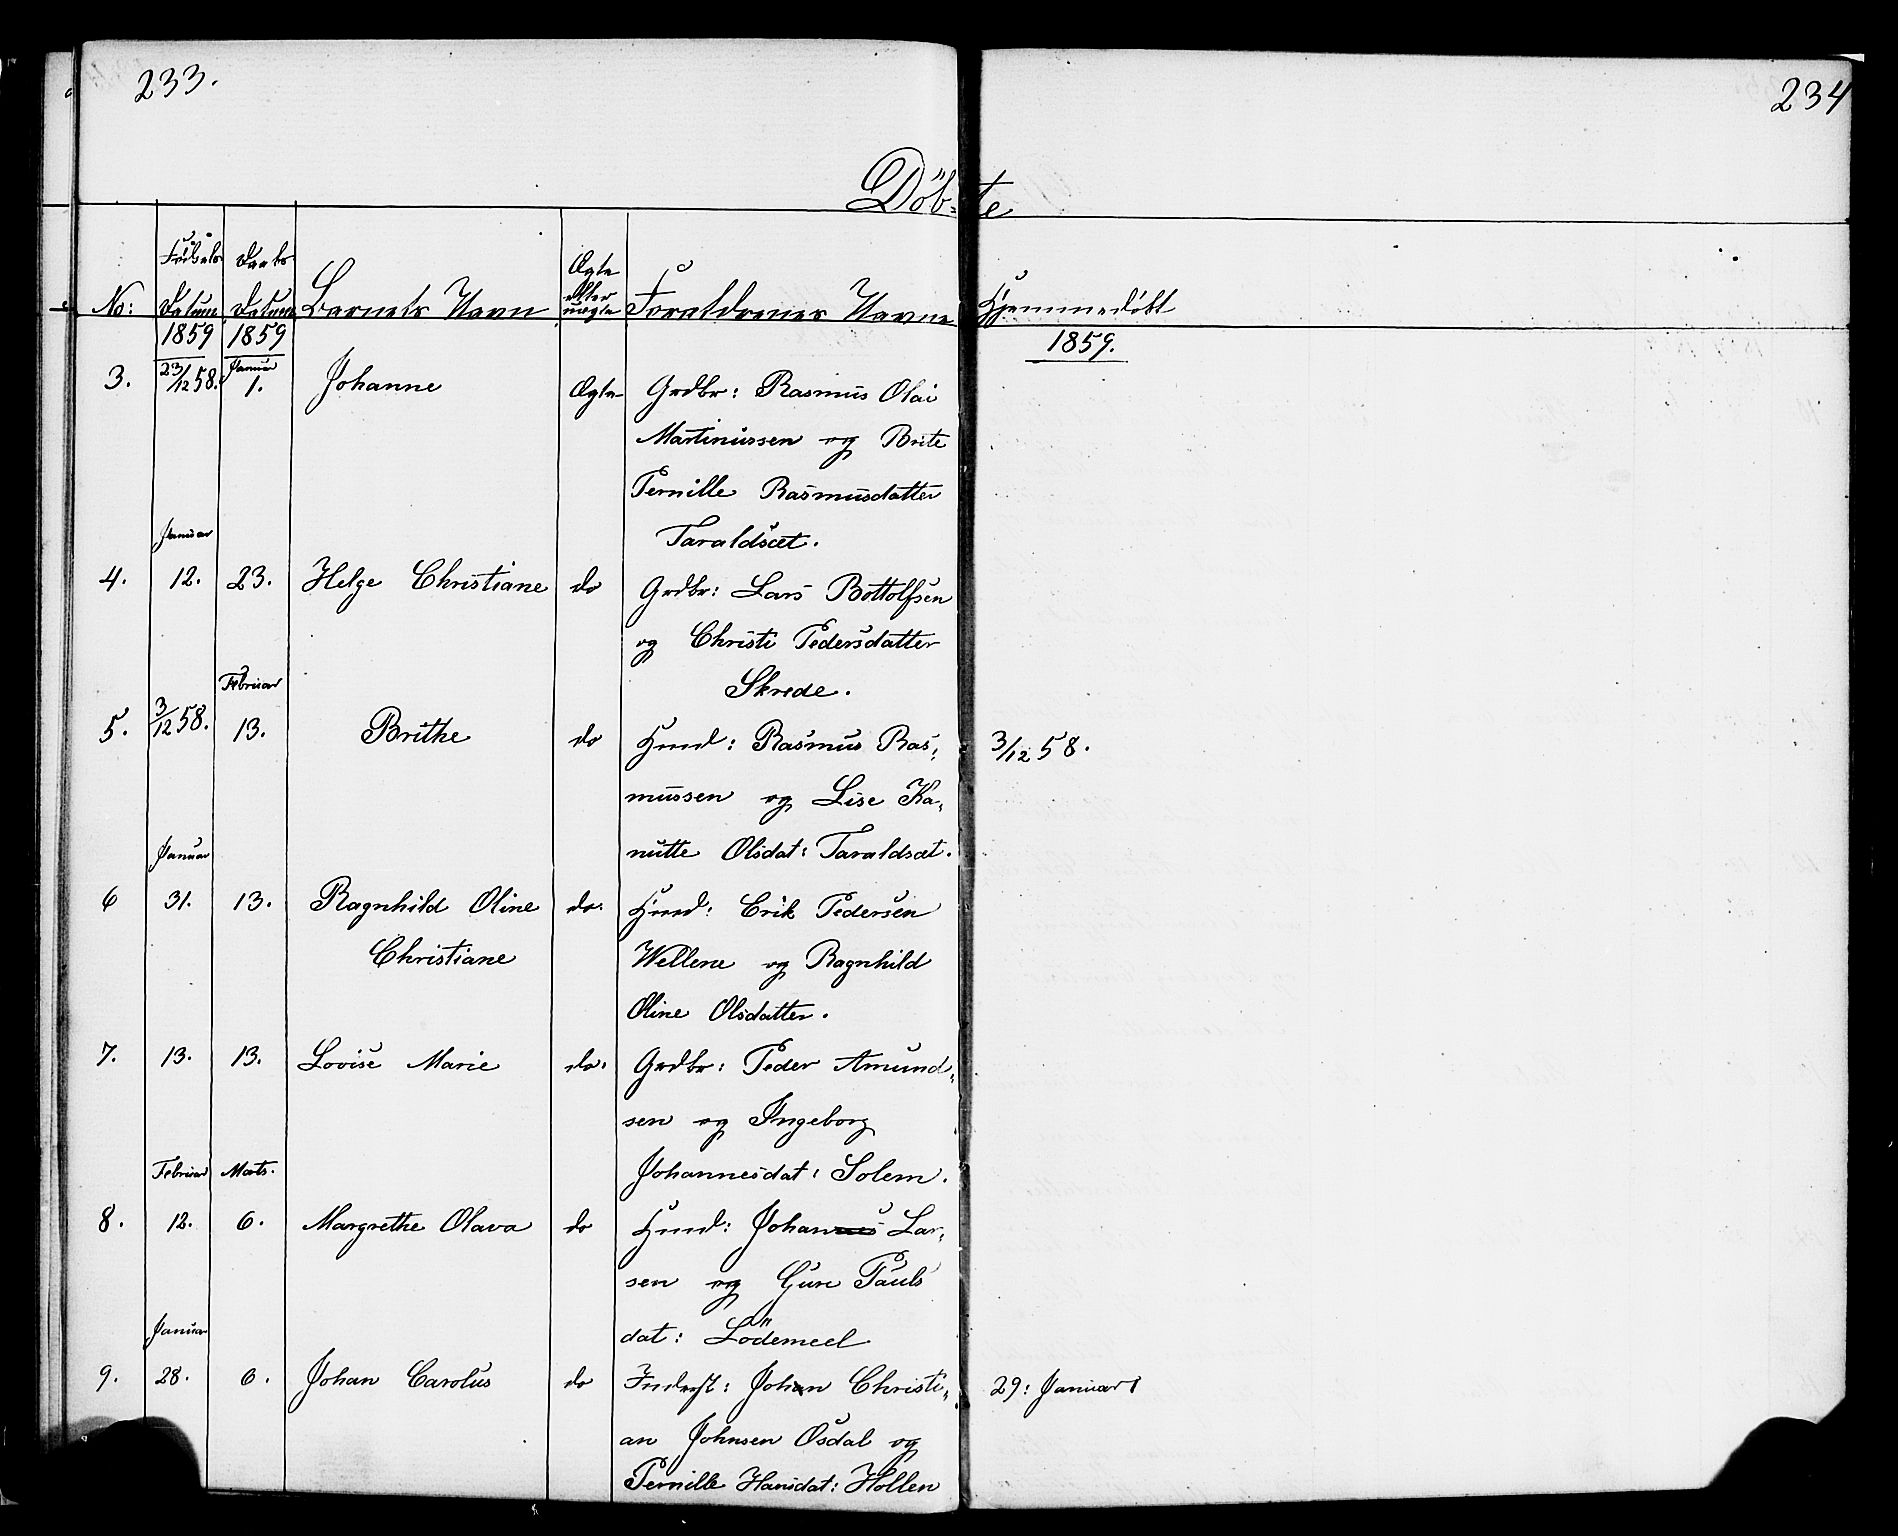 233.
234
Döb-te
No: Födsels Datum Daabs Datum Barnets Navn Ægte eller uægte Forældrenes Navne Hjemmedöbt
1859 1859 1859.
3. 23/12 58. Januar 1. Johanne Ægte Grdbr: Rasmus Olai
Martinussen og Brite
Pernille Rasmusdatter
Taraldsæt.
Januar
4. 12. 23. Helge Christiane do Grdbr: Lars Bottolfsen
og Christi Pedersdatter
Skrede.
Februar
5. 3/12 58. 13. Brithe do Huusd: Rasmus Ras,
mussen og Lise Ka,
nutte Olsdat: Taraldsæt.
3/12 58.
Januar
6 31. 13. Ragnhild Oline do. Huusd: Erik Pedersen
Christiane Wellene og Ragnhild
Oline Olsdatter.
7. 13. 13. Lovise Marie do. Grdbr: Peder Amund,
sen og Ingeborg
Johannesdat: Solem.
Februar Marts.
8. 12. 6. Margrethe Olava do Huusd: Johannes Lar,
sen og Guru Pauls
dat: Lödemeel
Januar
9. 28. 6. Johan Carolus do Inderst: Johan Christi,
an Johnsen Osdal og
Pernille Hansdat: Hollen
29: Januar